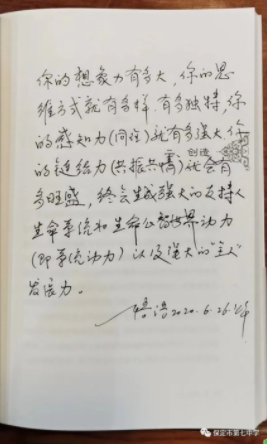 你的想象力有多大,你的思
维方式就有多样、有多独特,你
的感知力(同程)就有多强大,你
创造
的链给力(共振共情)就会有
多旺盛,终会生成强大的支持人
生命系统和生命公智世界动力
(即系统动力)以及强大的“主人”
发展力。
2020.6.26.
保定市第七中学